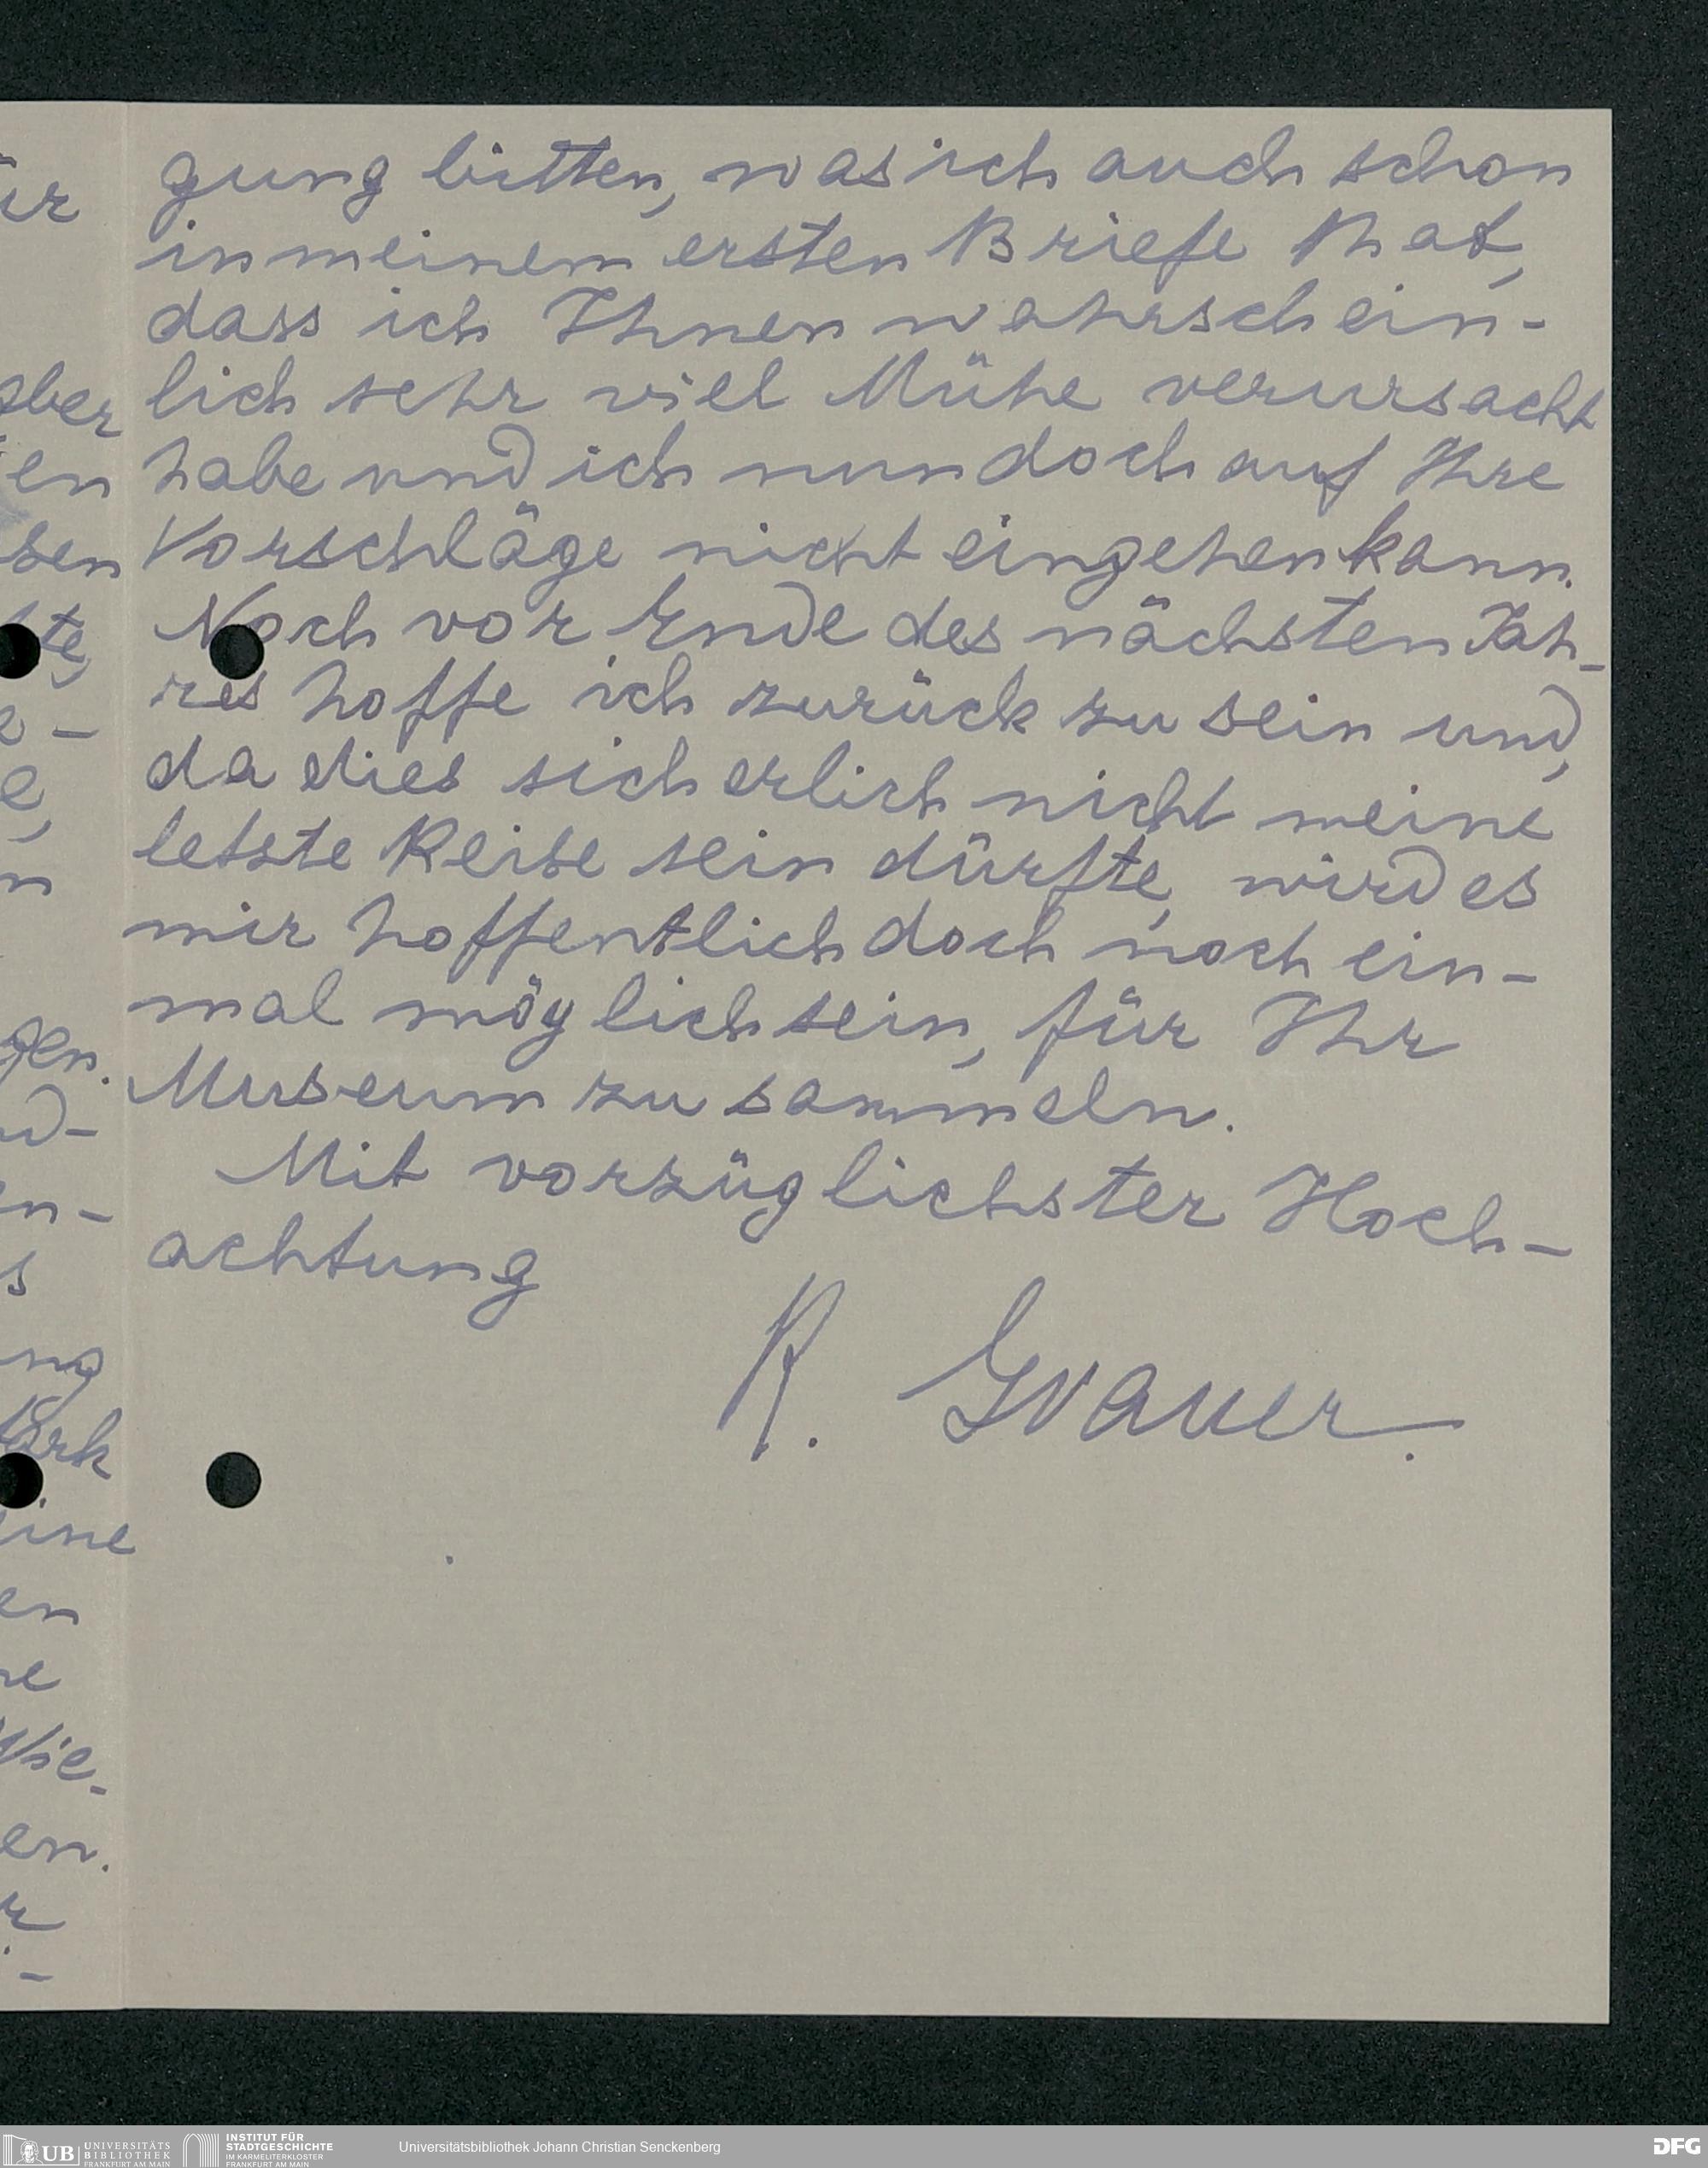 gung bitten, was ich auch schon
in meinem ersten Briefe that,
dass ich Ihnen wahrschein-
lich sehr viel Mühe verursacht
habe und ich nun doch auf Ihre
Vorschläge nicht eingehen kann.
Noch vor Ende des nächsten Jah-
res hoffe ich zurück zu sein und,
da dies sicherlich nicht meine
letzte Reise sein dürfte, wird es
mir hoffentlich doch noch ein-
mal möglich sein, für Ihr
Museum zu sammeln.
Mit vorzüglichster Hoch-
achtung
R. Grauer.
UB UNIVERSITÄTS
BIBLIOTHEK
FRANKFURT AM MAIN
INSTITUT FÜR
STADTGESCHICHTE
IM KARMELITERKLOSTER
FRANKFURT AM MAIN
Universitätsbibliothek Johann Christian Senckenberg
DFG